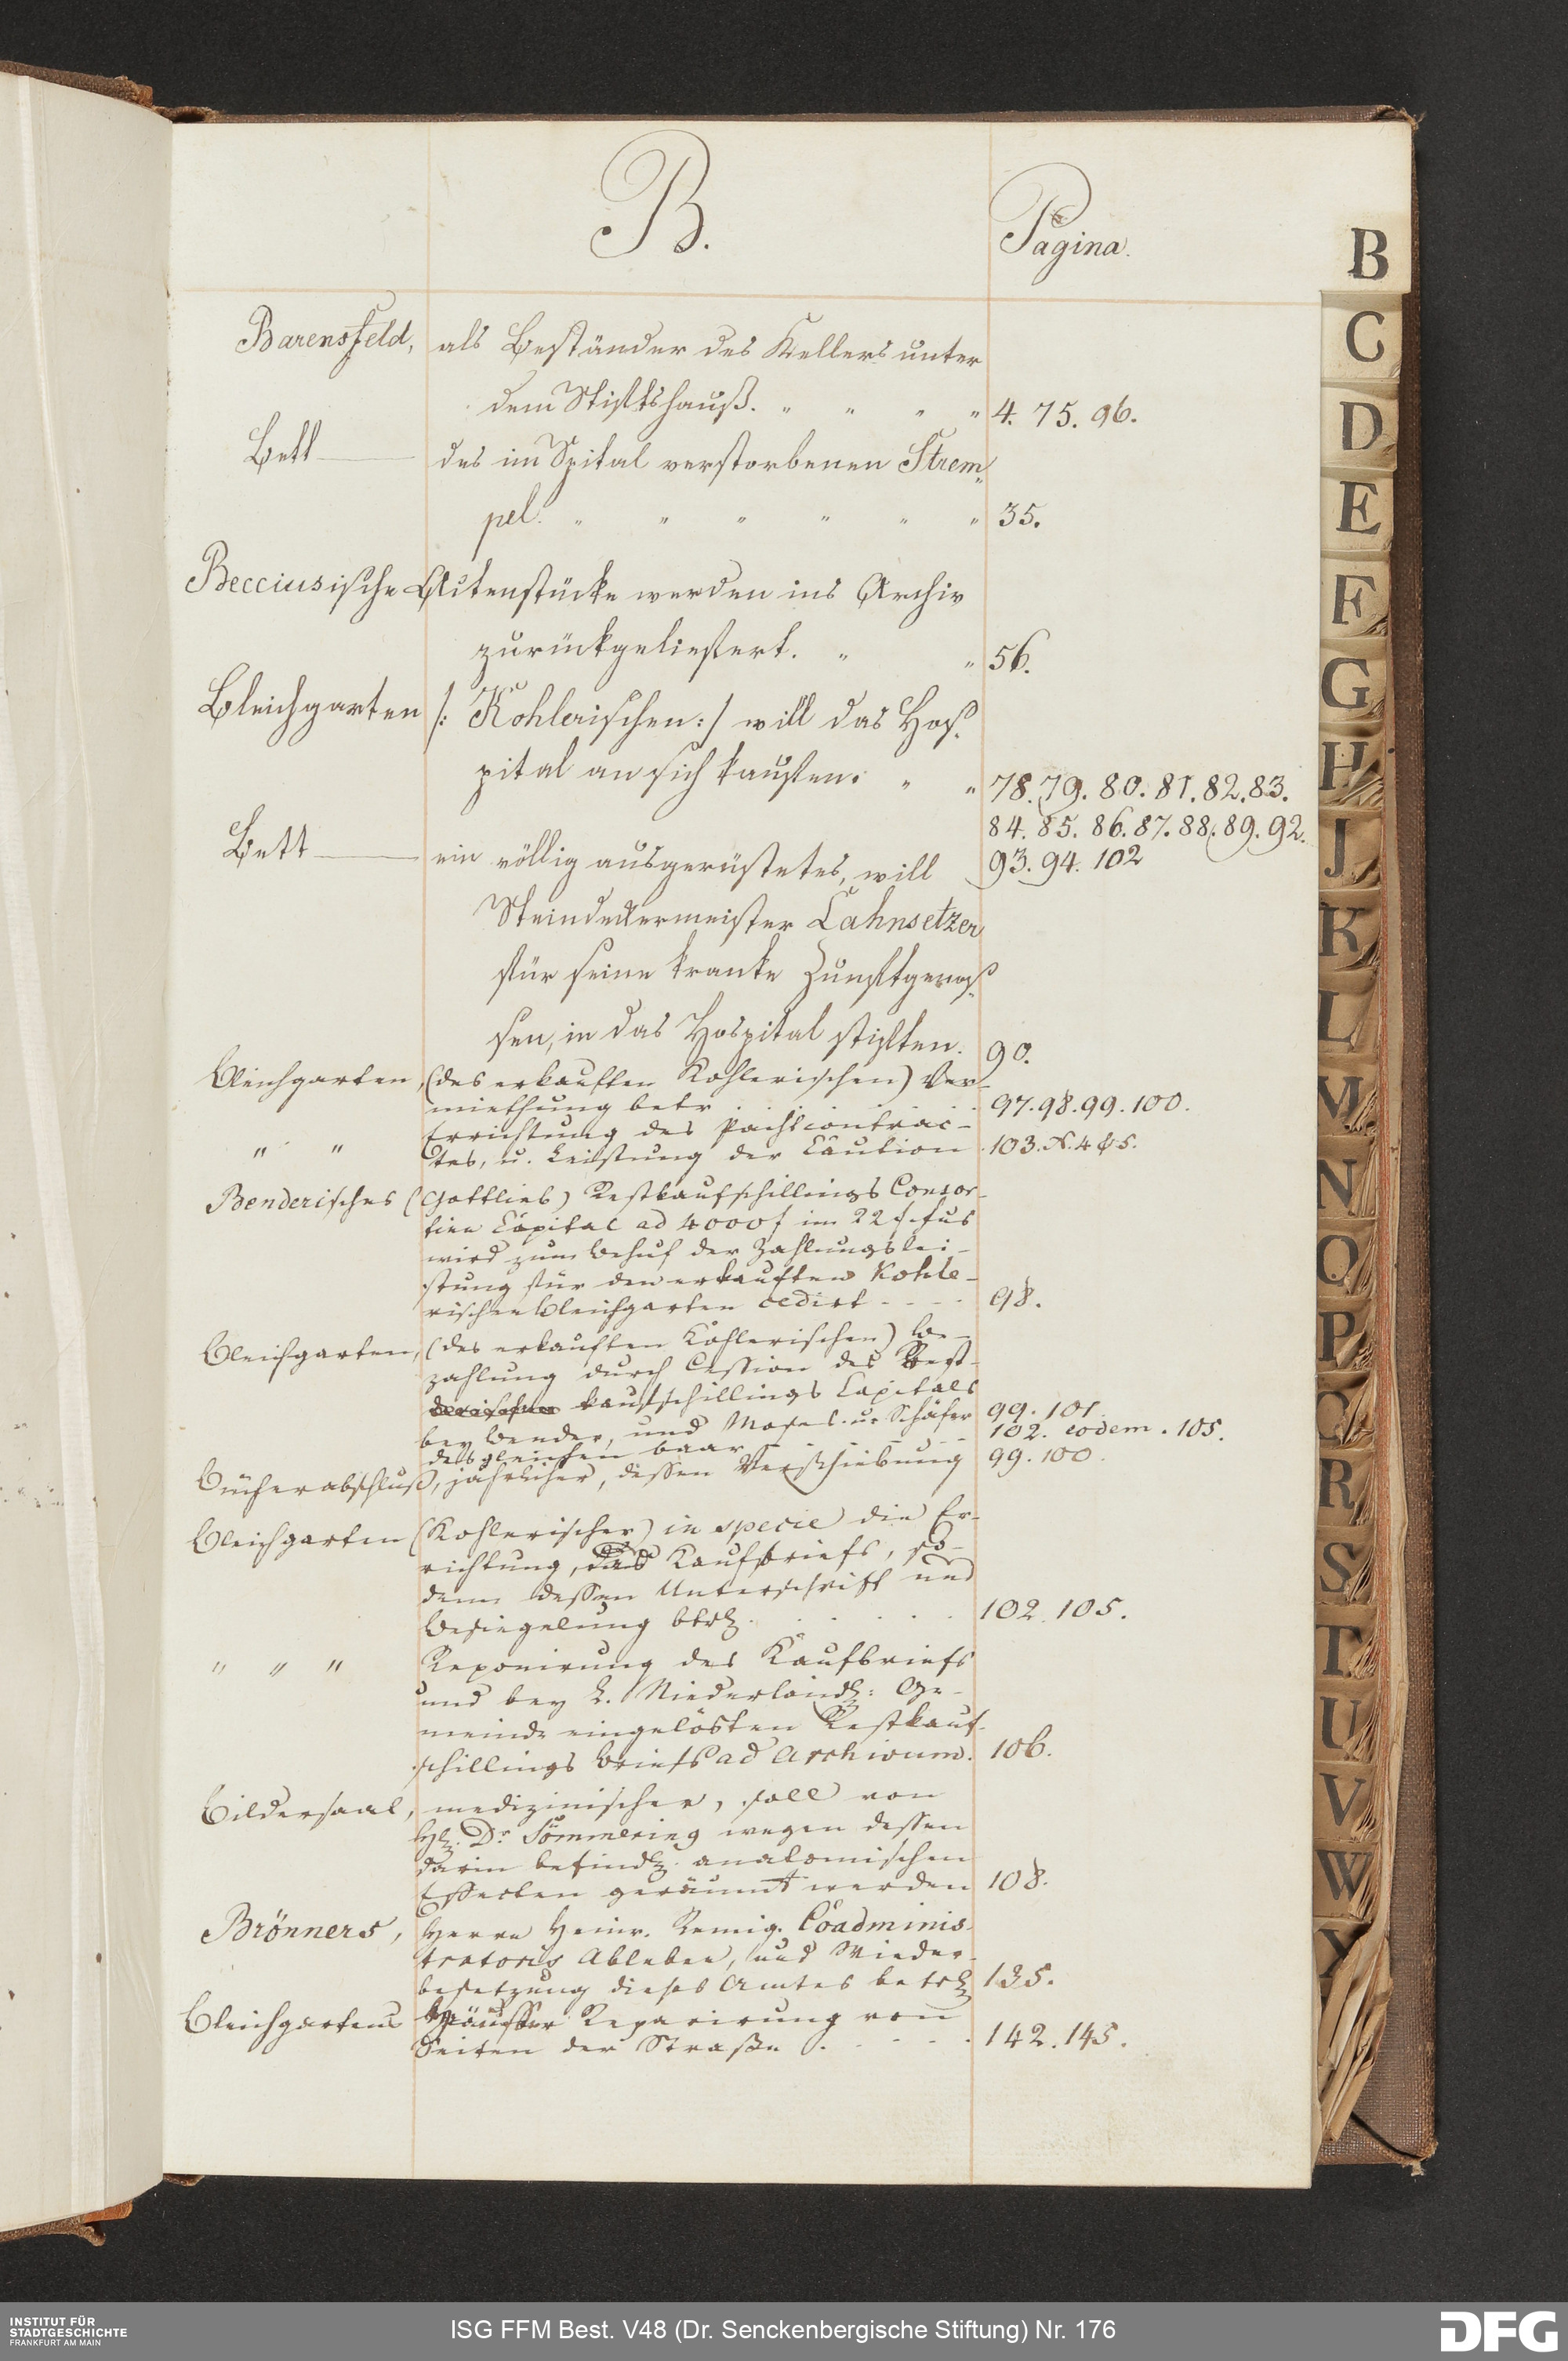 B.
Pagina.
Barensfeld, als Beständer des Kellers unter
dem Stiftshauß. " " " " 4. 75. 96.
Bett des im Spital verstorbenen Strem„
pel. " " " " " " 35.
Becciusische Actenstücke werden ins Archiv
zurückgeliefert. " " 56.
Bleichgarten /: Kohlerischen :/ will das Hos„
pital an sich kaufen. " " 78. 79. 80. 81. 82. 83.
84. 85. 86. 87. 88. 89. 92.
Bett ein völlig ausgerüstetes, will 93. 94. 102
Steindeckermeister Lahnsetzer
für seine kranke Zunftgenos„
sen, in das Hospital stiften. 90.
Bleichgarten, (des erkauften Kohlerischen) Ver-
miethung betr. . . . 97. 98. 99. 100.
Errichtung des Pachtcontrac-
" " tes, u. Leistung der Caution . 103. N. 4 & 5.
Benderisches (Gottlieb) Restkaufschillings Consor-
tien Capital ad 4000 f im 22 f. fus
wird zum Behuf der Zahlungslei-
stung für den erkauften Kohle-
rischen Bleichgarten cedirt - - - - 98.
Bleichgarten, (des erkauften Kohlerischen) Be-
zahlung durch Cession des Rest-
kaufschillings Capitals
bey Bender, und Moses u. Schäfer 99. 101.
desgleichen baar - - - - 102. eodem. 105.
Bücherabschluß, jährlicher, dessen Verschiebung 99. 100.
Bleichgarten (Kohlerischer) in specie die Er-
richtung, des Kaufbriefs, so-
denn dessen Unterschrift und
Besiegelung betr. . . . . . 102. 105.
" " " Reponirung des Kaufbriefs
und bey L. Niederländ: Ge-
meinde eingelösten Restkauf-
schillings Briefs ad Archivum. 106.
Bildersaal, medizinischer, soll von
H. Dr Sömmering wegen dessen
darin befindl. anatomischen
Effecten geräumt werden 108.
Brönners, Herrn Heinr. Remig. Coadminis-
tratoris Ableben, und Wieder-
besetzung dieses Amtes betr. 135.
Bleichgartens Häusser Reparirung von
Seiten der Straße . - - - . 142. 145.
B
C
D
E
F
G
H
J
K
L
M
N
O
P
Q
R
S
T
U
V
W
Y
INSTITUT FÜR
STADTGESCHICHTE
FRANKFURT AM MAIN
ISG FFM Best. V48 (Dr. Senckenbergische Stiftung) Nr. 176
DFG